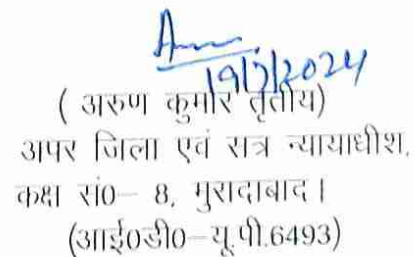 19/7/2024
( अरुण कुमार तृतीय)
अपर जिला एवं सत्र न्यायाधीश,
कक्ष सं0– 8, मुरादाबाद।
(आई0डी0–यू.पी.6493)